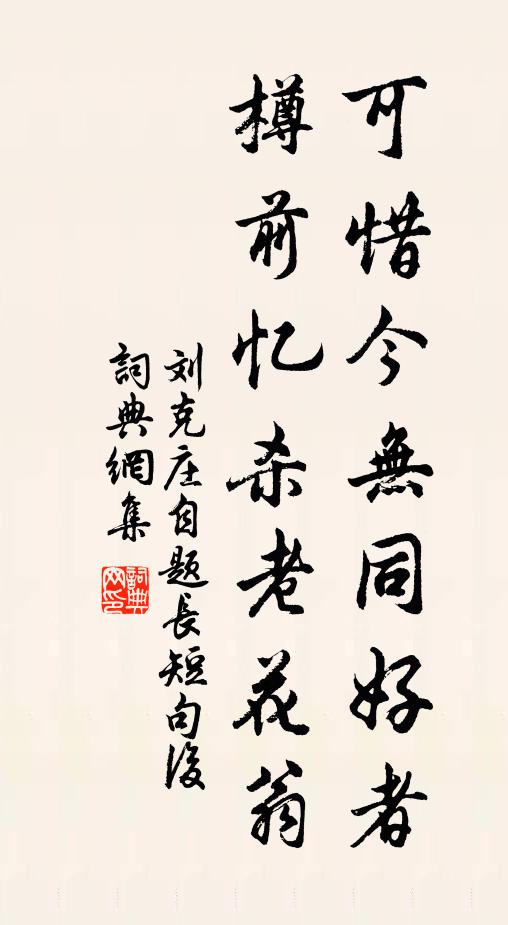 可惜今無同好者
樽前忆杀老花翁
刘克庄自题長短句後
詞典網集
詞典
网印